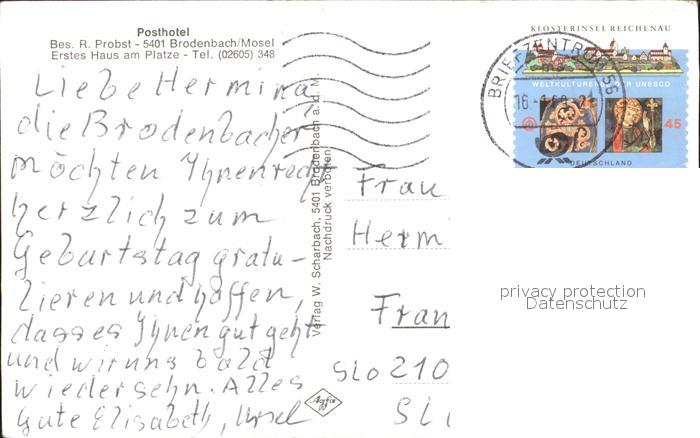 Posthotel
Bes. R. Probst - 5401 Brodenbach/Mosel
Erstes Haus am Platze - Tel. (02605) 348
Liebe Hermina
die Brodenbacher
möchten Ihnen recht
herzlich zum
Geburtstag gratu-
lieren und hoffen,
dass es Ihnen gut geht
und wir uns bald
wiedersehn. Alles
Gute Elisabeth, Ursel
Verlag W. Scharbach, 5401 Brodenbach a. d. M.
Nachdruck verboten!
Agfa
KLOSTERINSEL REICHENAU
BRIEFZENTRUM 56
WELTKULTURERBE DER UNESCO
16
45
DEUTSCHLAND
Frau
Herm
Fran
SLO 210
SL
privacy protection
Datenschutz